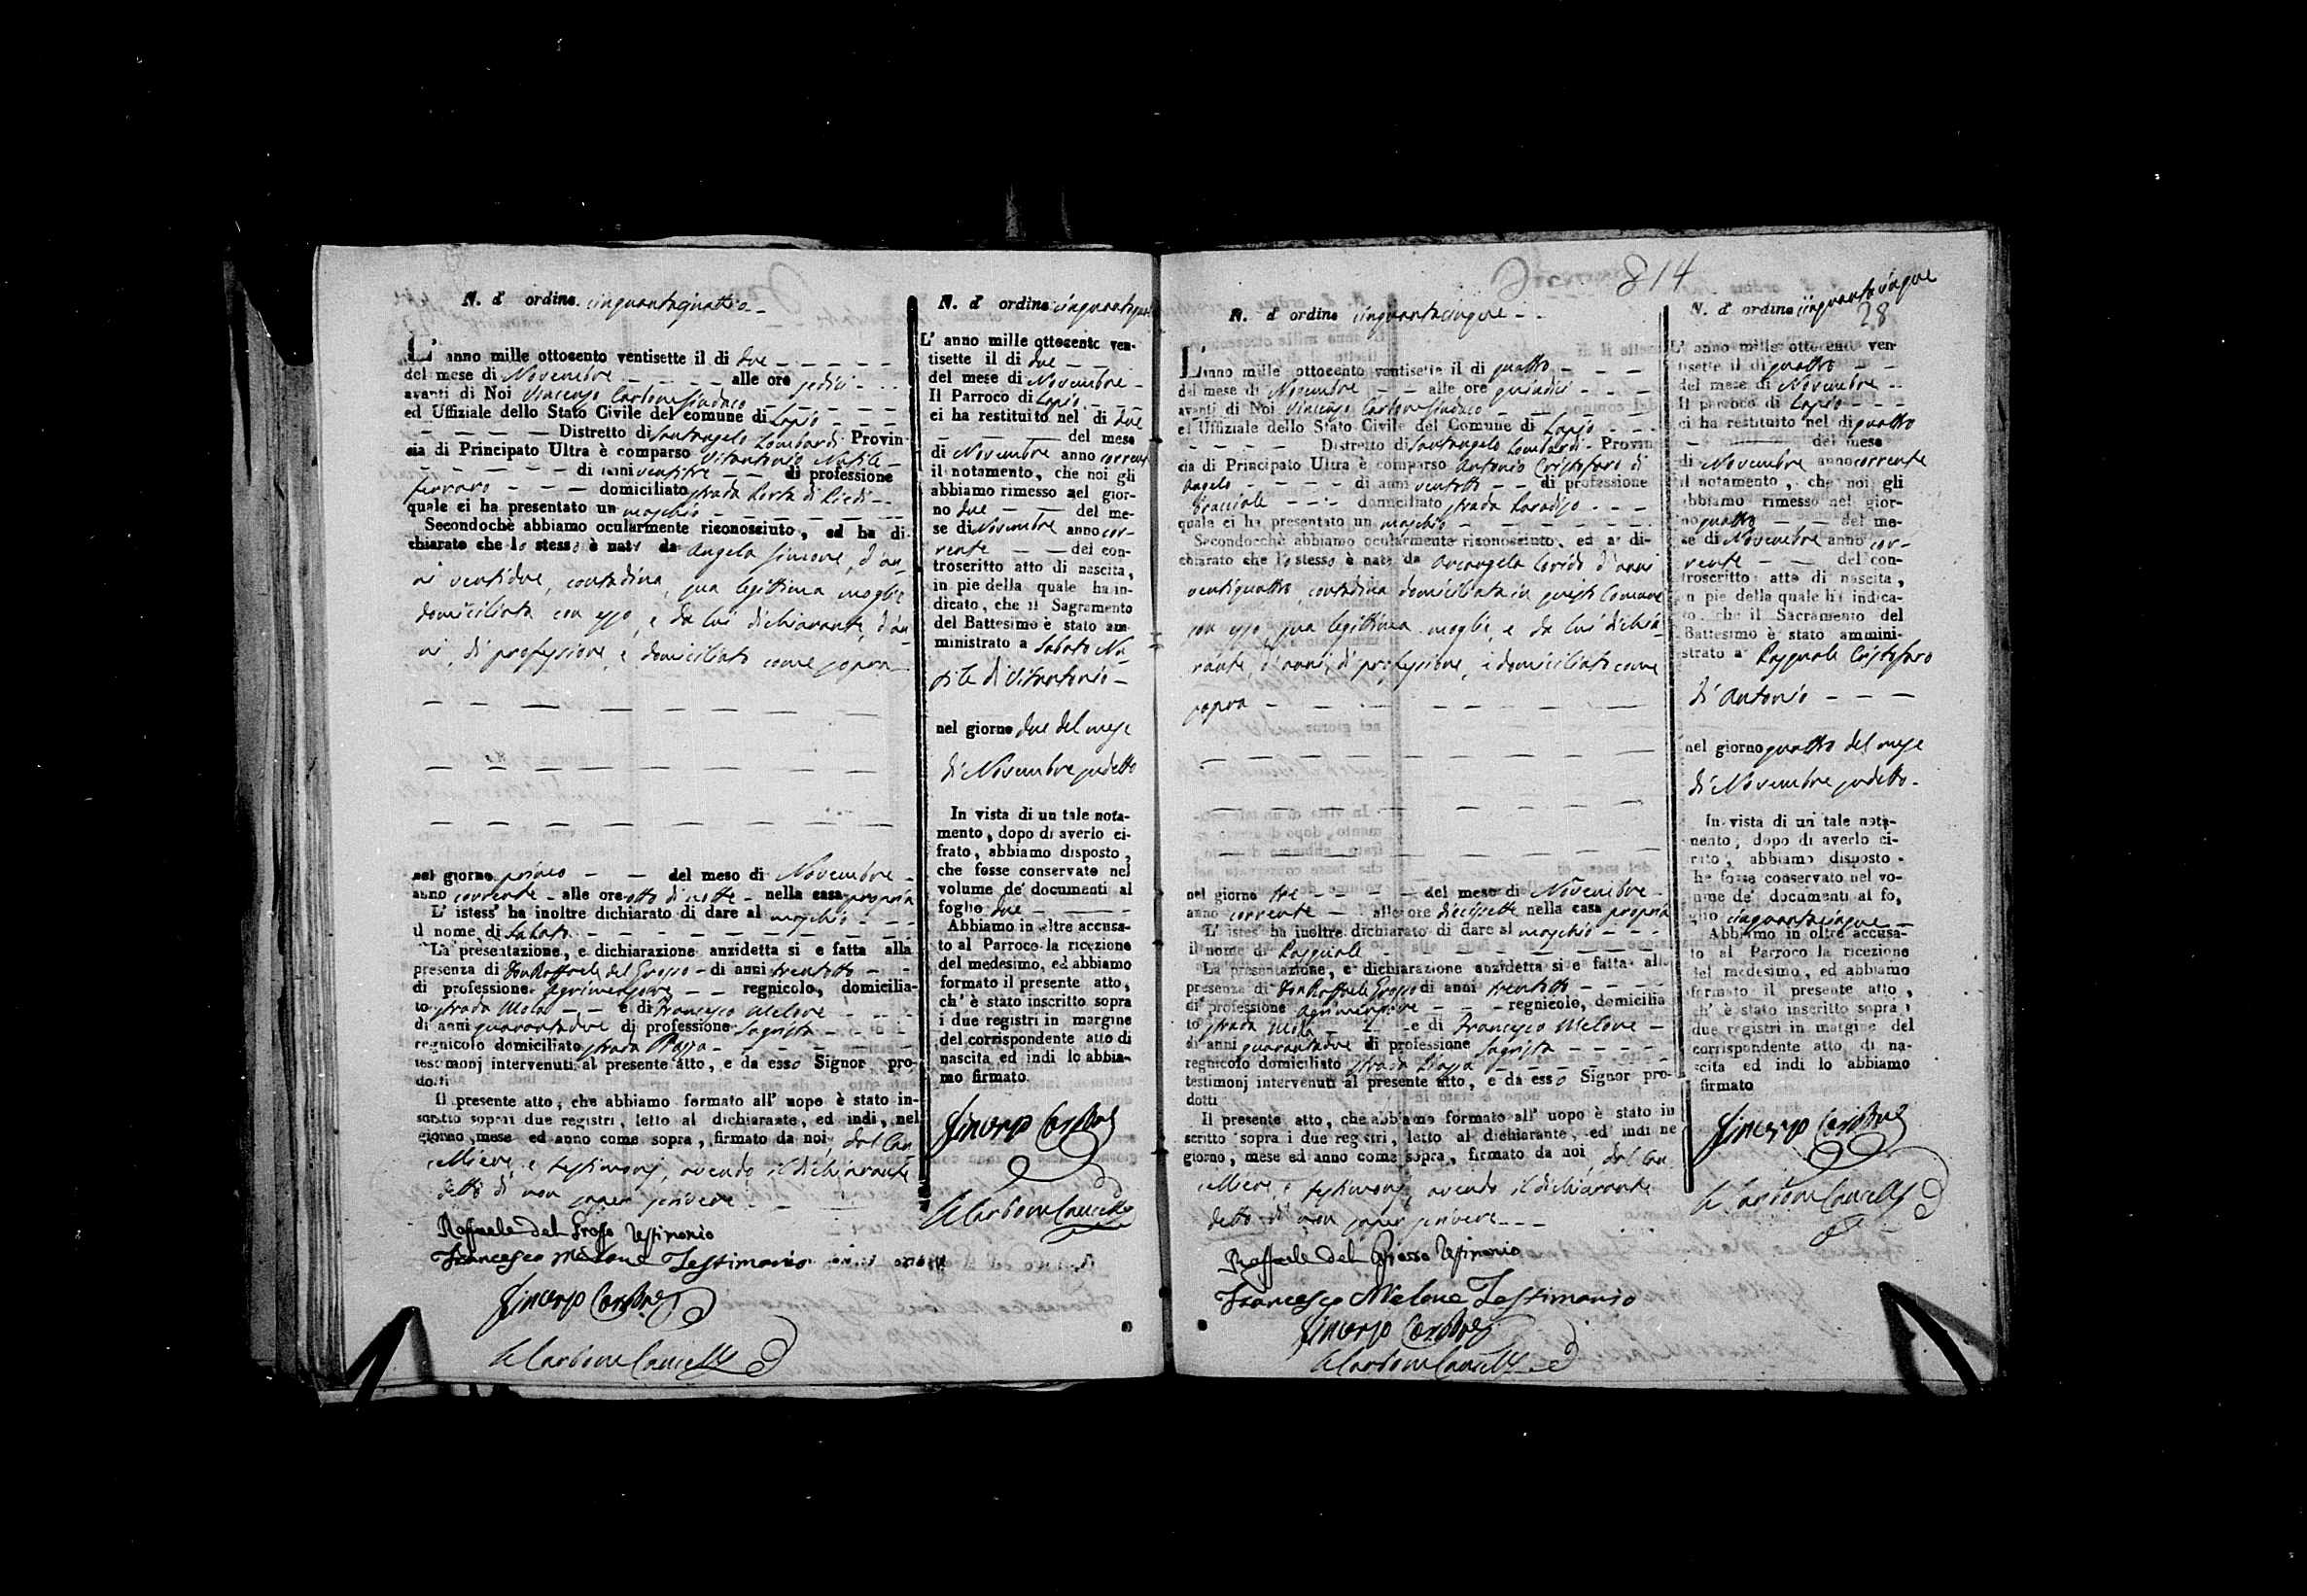 N. d' ordine cinquantaquattro
L' anno mille ottocento ventisette il di due
del mese di Novembre alle ore sedici
avanti di Noi Vincenzo Carbone Sindaco
ed Uffiziale dello Stato Civile del comune di Lapio
Distretto di Santangelo Lombardi Provin-
cia di Principato Ultra è comparso Vitantonio
di anni ventitre di professione
ferraro domiciliato strada Porta di Piedi
quale ci ha presentato un maschio
Secondochè abbiamo ocularmente riconosciuto, ed ha di-
chiarato che lo stesso è nato da Angela Simeone, d'an-
ni ventidue, contadina, sua legittima moglie
domiciliata con esso, e da lui dichiarante, d'an-
ni, di professione, e domiciliato come sopra
nel giorno primo del mese di Novembre
anno corrente alle ore otto di notte nella casa propria
L' istess' ha inoltre dichiarato di dare al maschio
il nome di Sabato
La presentazione, e dichiarazione anzidetta si e fatta alla
presenza di Don Raffaele del Grosso di anni trentotto
di professione Agrimensore regnicolo, domicilia-
to strada Mola e di Francesco Melone
di anni quarantadue di professione Sagrista
regnicolo domiciliato strada Piazza
testimonj intervenuti al presente atto, e da esso Signor pro-
dotti
Il presente atto, che abbiamo formato all' uopo è stato in-
scritto sopra i due registri, letto al dichiarante, ed indi, nel
giorno, mese ed anno come sopra, firmato da noi, dal Can-
celliere, e testimonj, avendo il dichiarante
detto di non saper scrivere
Raffaele del Grosso Testimonio
Francesco Melone Testimonio
Vincenzo Carbone
Carbone Cancell
N. d' ordine
L' anno mille ottocento ven-
tisette il di due
del mese di Novembre
Il Parroco di Lapio
ci ha restituito nel di due
del mese
di Novembre anno corrente
il notamento, che noi gli
abbiamo rimesso nel gior-
no due del me-
se di Novembre anno cor-
rente del con-
troscritto atto di nascita,
in pie della quale ha in-
dicato, che il Sagramento
del Battesimo è stato am-
ministrato a Sabato
di Vitantonio
nel giorno due del mese
di Novembre sudetto
In vista di un tale nota-
mento, dopo di averlo ci-
frato, abbiamo disposto,
che fosse conservato nel
volume de' documenti al
foglio due
Abbiamo in oltre accusa-
to al Parroco la ricezione
del medesimo, ed abbiamo
formato il presente atto,
ch' è stato inscritto sopra
i due registri in margine
del corrispondente atto di
nascita ed indi lo abbia-
mo firmato.
Vincenzo Carbone
Carbone Cancell
814
N. d' ordine cinquantacinque
L' anno mille ottocento ventisette il di quattro
del mese di Novembre alle ore quindici
avanti di Noi Vincenzo Carbone Sindaco
ed Uffiziale dello Stato Civile del Comune di Lapio
Distretto di Santangelo Lombardi Provin-
cia di Principato Ultra è comparso Antonio Cristofaro di
Angelo di anni ventotto di professione
bracciale domiciliato strada Paradiso
quale ci ha presentato un maschio
Secondocchè abbiamo ocularmente riconosciuto, ed a di-
chiarato che lo stesso è nato da Arcangela d'anni
ventiquattro, contadina domiciliata in questo Comune
con esso, sua legittima moglie, e da lui dichia-
rante, d'anni, di professione, e domiciliato come
sopra
nel giorno tre del mese di Novembre
anno corrente alle ore diecissette nella casa propria
L' istes' ha inoltre dichiarato di dare al maschio
il nome di Pasquale
La presentazione, e dichiarazione anzidetta si e fatta alla
presenza di Don Raffaele Grosso di anni trentotto
di professione Agrimensore regnicolo, domicilia
to strada Mola e di Francesco Melone
di anni quarantadue di professione Sagrista
regnicolo domiciliato strada Piazza
testimonj intervenuti al presente atto, e da esso Signor pro-
dotti
Il presente atto, che abbiamo formato all' uopo è stato in
scritto sopra i due registri, letto al dichiarante, ed indi ne
giorno, mese ed anno come sopra, firmato da noi, dal Can
celliere, e testimonj, avendo il dichiarante
detto di non saper scrivere
Raffaele del Grosso Testimonio
Francesco Melone Testimonio
Vincenzo Carbone
Carbone Cancell
N. d' ordine cinquantacinque
28
L' anno mille ottocento ven
tisette il di quattro
del mese di Novembre
Il parroco di Lapio
ci ha restituito nel di quattro
del mese
di Novembre anno corrente
il notamento, che noi gli
abbiamo rimesso nel gior-
no quattro del me-
se di Novembre anno cor-
rente del con-
troscritto atto di nascita,
in pie della quale hi indica-
to, che il Sacramento del
Battesimo è stato ammini-
strato a Pasquale Cristofaro
di Antonio
nel giorno quattro del mese
di Novembre sudetto
In vista di un tale nota-
mento, dopo di averlo ci-
frato, abbiamo disposto
he fosse conservato nel vo-
lume de' documenti al fo,
glio cinquantacinque
Abbiamo in oltre accusa-
to al Parroco la ricezione
del medesimo, ed abbiamo
formato il presente atto,
ch' è stato inscritto sopra i
due registri in margine del
corrispondente atto di na-
scita ed indi lo abbiamo
firmato
Vincenzo Carbone
Carbone Cancell